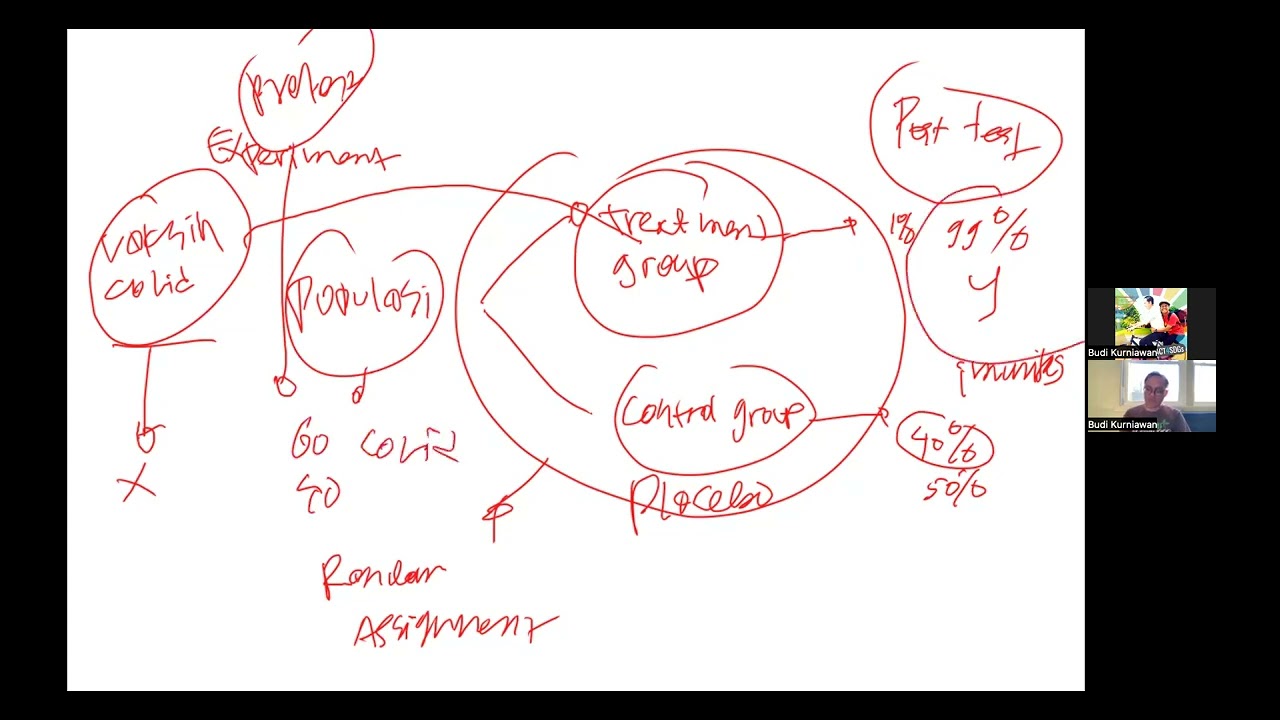 Pretest
Experiment
Vaksin
Covid
X
Populasi
60 Covid
40
Random
Assignment
treatment
group
Control group
Placebo
Post test
1%
99%
Y
imunitas
40%
50%
Budi Kurniawan
ICT4SDGs
Budi Kurniawan